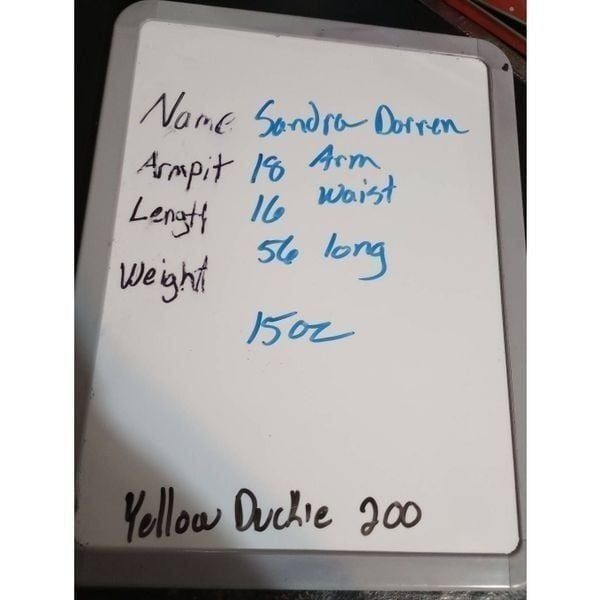 Name Sandra Darren
Armpit 18 Arm
Length 16 Waist
56 long
Weight
15oz
Yellow Duckie 200